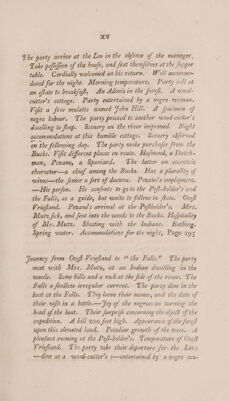 XV
The party arrive at the Loo in the absence of the manager.
Take possession of the house, and seat themselves at the supper
table. Cordially welcomed on his return. Well accommo-
dated for the night. Morning temperature. Party call at
an estate to breakfast. An Adonis in the forest. A wood-
cutter's cottage. Party entertained by a negro woman.
Visit a free mulatto named John Hill. A specimen of
negro labour. The party proceed to another wood-cutter's
dwelling to sleep. Scenery on the river improved. Night
accommodations at this humble cottage. Scenery observed
on the following day. The party make purchases from the
Bucks. Visit different places en route. Hasmond, a Dutch-
man, Pexano, a Spaniard. The latter an eccentric
character—a chief among the Bucks. Has a plurality of
wives—the senior a sort of duenna. Pexano's employment.
—His person. He consents to go to the Post-holder's and
the Falls, as a guide, but waits to follow in state. Oost
Vriesland. Pexano's arrival at the Postholder's. Mrs.
Mutz sick, and sent into the woods to the Bucks. Hospitality
of Mr. Mutz. Shooting with the Indians. Bathing.
Spring water. Accommodations for the night, Page 295
Journey from Oost Vriesland to " the Falls." The party
meet with Mrs. Mutz, at an Indian dwelling in the
woods. Some hills and a rock at the side of the river. The
Falls a shallow irregular current. The party dine in the
boat at the Falls. They leave their names, and the date of
their visit in a bottle.—Joy of the negroes on turning the
head of the boat. Their surprise concerning the object of the
expedition. A hill 200 feet high. Appearance of the forest
upon this elevated land. Peculiar growth of the trees. A
pleasant evening at the Post-holder's. Temperature of Oost
Vriesland. The party take their departure for the Loo:
—dine at a wood-cutter's :—entertained by a negro wo-